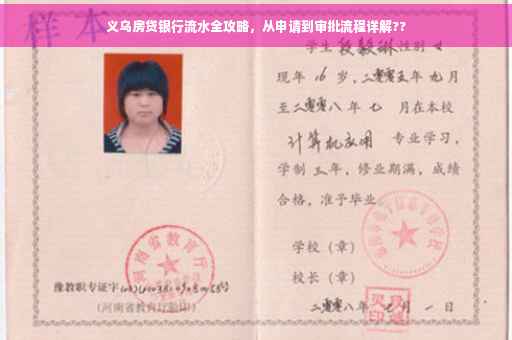 义乌房贷银行流水全攻略，从申请到审批流程详解??
样本
学生段毅琳性别女
现年16岁，二零零五年九月
至二零零八年七月在本校
计算机应用 专业学习，
学制三年，修业期满，成绩
合格，准予毕业
学校（章）
校长（章）
河南省教育厅
豫教职专证字
(河南省教育厅验印)
二零零八年七月一日